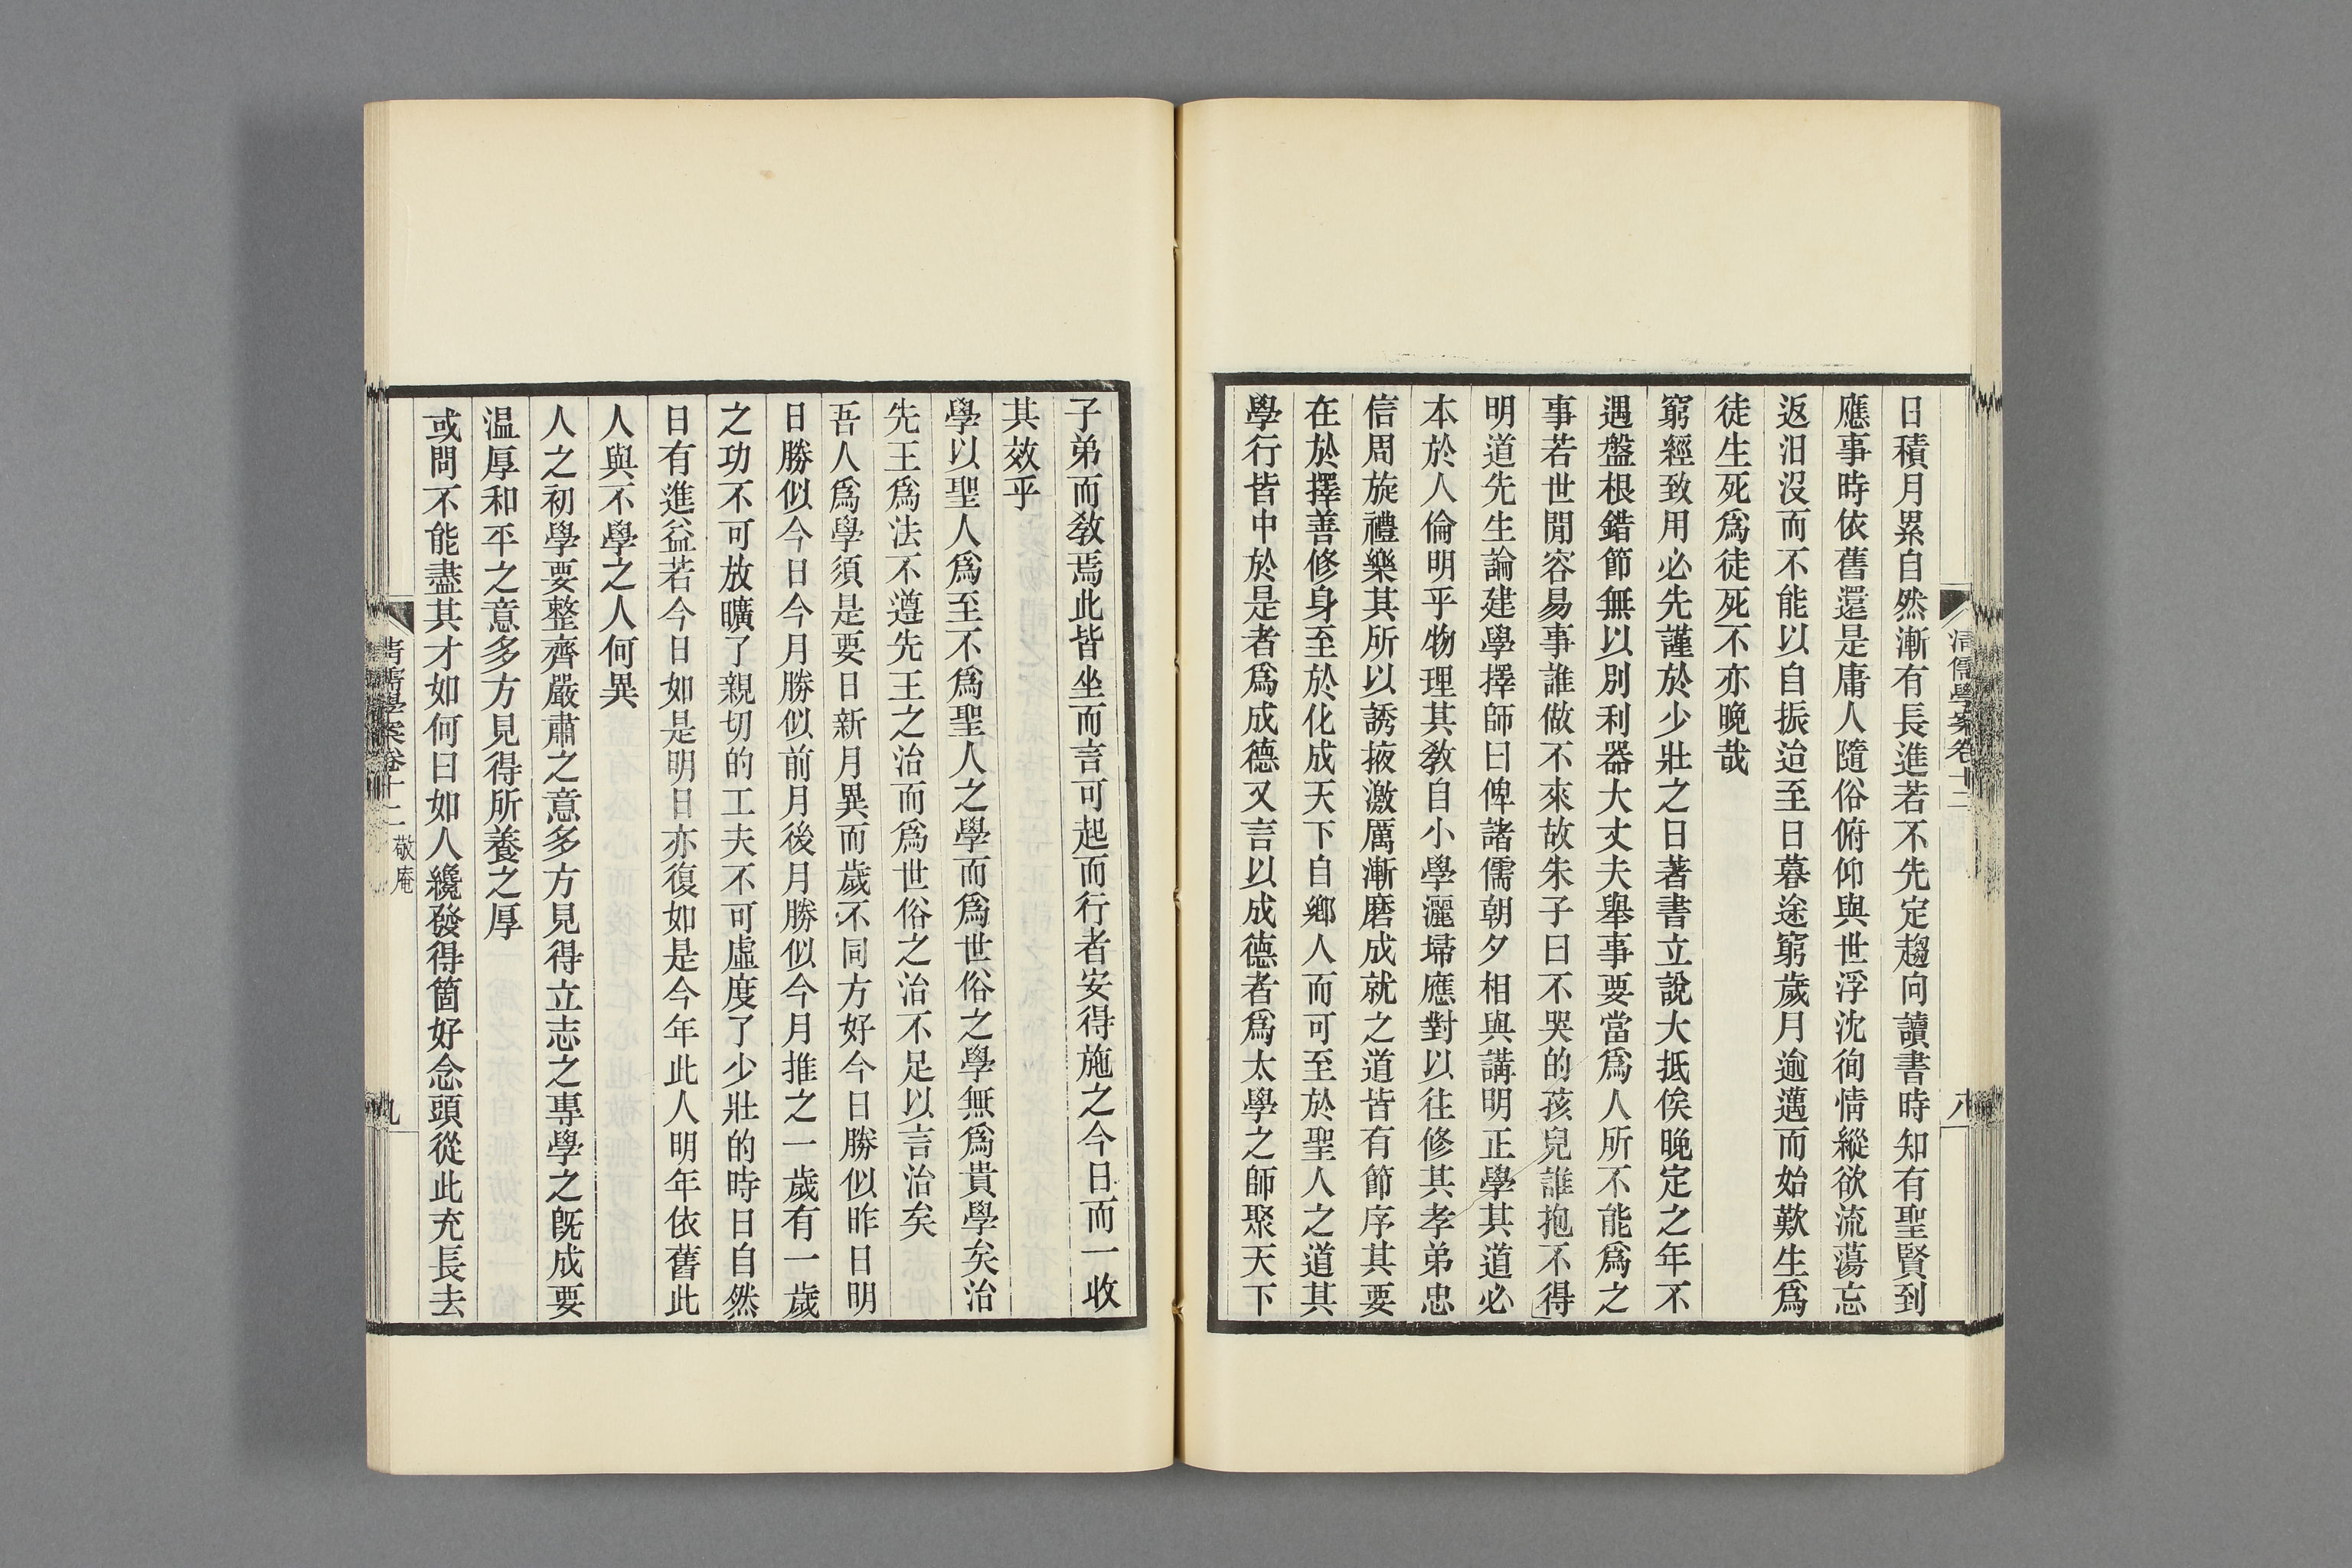 日積月累自然漸有長進若不先定趨向讀書時知有聖賢到
應事時依舊還是庸人隨俗俯仰與世浮沈徇情縱欲流蕩忘
返汨沒而不能以自振迨至日暮途窮歲月逾邁而始歎生爲
徒生死爲徒死不亦晚哉
窮經致用必先謹於少壯之日著書立說大抵俟晚定之年不
遇盤根錯節無以別利器大丈夫舉事要當爲人所不能爲之
事若世閒容易事誰做不來故朱子曰不哭的孩兒誰抱不得
明道先生論建學擇師曰俾諸儒朝夕相與講明正學其道必
本於人倫明乎物理其敎自小學灑埽應對以往修其孝弟忠
信周旋禮樂其所以誘掖激厲漸磨成就之道皆有節序其要
在於擇善修身至於化成天下自鄉人而可至於聖人之道其
學行皆中於是者爲成德又言以成德者爲太學之師聚天下
清儒學案卷十二
八
子弟而敎焉此皆坐而言可起而行者安得施之今日而一收
其效乎
學以聖人爲至不爲聖人之學而爲世俗之學無爲貴學矣治
先王爲法不遵先王之治而爲世俗之治不足以言治矣
吾人爲學須是要日新月異而歲不同方好今日勝似昨日明
日勝似今日今月勝似前月後月勝似今月推之一歲有一歲
之功不可放曠了親切的工夫不可虛度了少壯的時日自然
日有進益若今日如是明日亦復如是今年此人明年依舊此
人與不學之人何異
人之初學要整齊嚴肅之意多方見得立志之專學之旣成要
溫厚和平之意多方見得所養之厚
或問不能盡其才如何曰如人纔發得箇好念頭從此充長去
清儒學案卷十二 敬庵
九